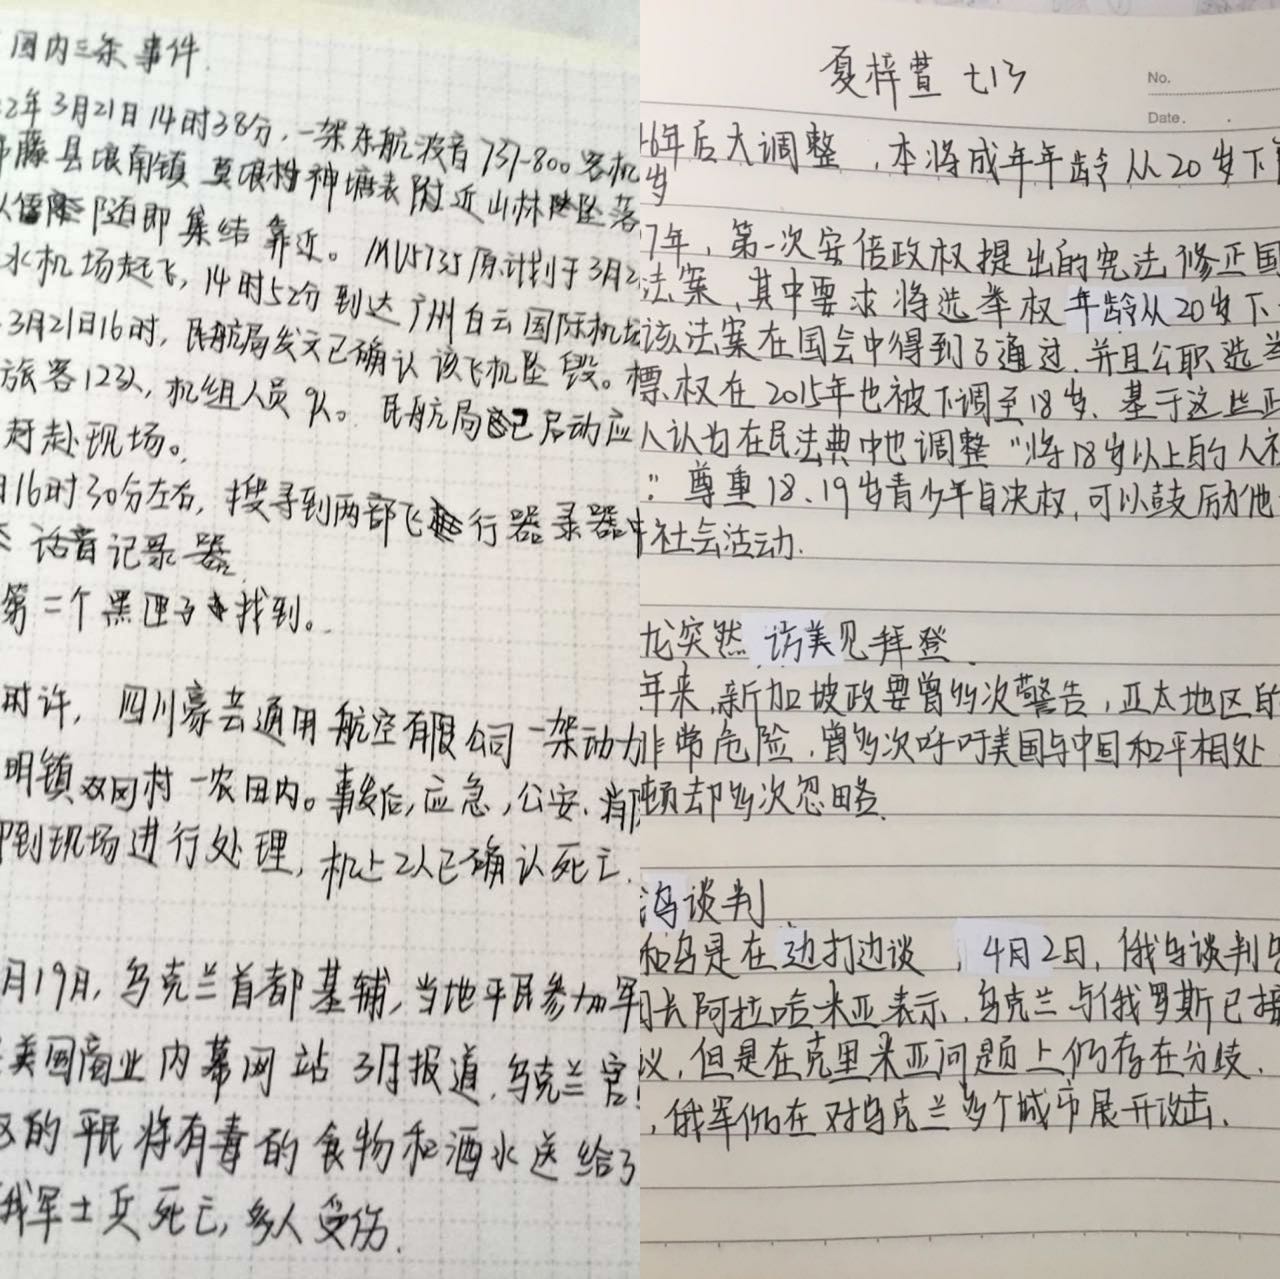 国内三条事件.
2年3月21日14时38分,一架东航波音737-800客机
藤县埌南镇莫埌村神塘表附近山林坠落
随即集结靠近。MU5735原计划于3月2
水机场起飞,14时52分到达广州白云国际机场
3月21日16时,民航局发文已确认该飞机坠毁。
旅客123人,机组人员9人。民航局已启动应
赶赴现场。
16时30分左右,搜寻到两部飞行器录器中
话音记录器.
第二个黑匣子找到。
时许,四川豪芸通用航空有限公司一架动力
明镇双回村一农田内。事发后,应急,公安、消防
到现场进行处理,机上2人已确认死亡.
月19月,乌克兰首都基辅,当地平民参加军
美国商业内幕网站3月报道,乌克兰官
的平民将有毒的食物和酒水送给了
俄军士兵死亡,多人受伤.
夏梓萱 七13
No.
Date. . .
46年后大调整,本将成年年龄从20岁下调
岁
7年,第一次安倍政权提出的宪法修正国
法案,其中要求将选举权年龄从20岁下
该法案在国会中得到了通过.并且公职选举
票权在2015年也被下调至18岁、基于这些政
人认为在民法典中也调整“将18岁以上的人视
”尊重18、19岁青少年自决权,可以鼓励他
社会活动.
龙突然访美见拜登.
年来,新加坡政要曾多次警告,亚太地区的
非常危险,曾多次呼吁美国与中国和平相处
顿却多次忽略.
乌谈判.
和乌是在边打边谈,4月2日,俄乌谈判乌
团长阿拉哈米亚表示,乌克兰与俄罗斯已接
议,但是在克里米亚问题上仍存在分歧.
,俄军仍在对乌克兰多个城市展开攻击.